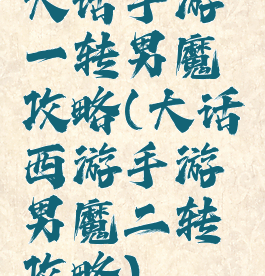 大话手游
一转男魔
攻略(大话
西游手游
男魔二转
攻略)